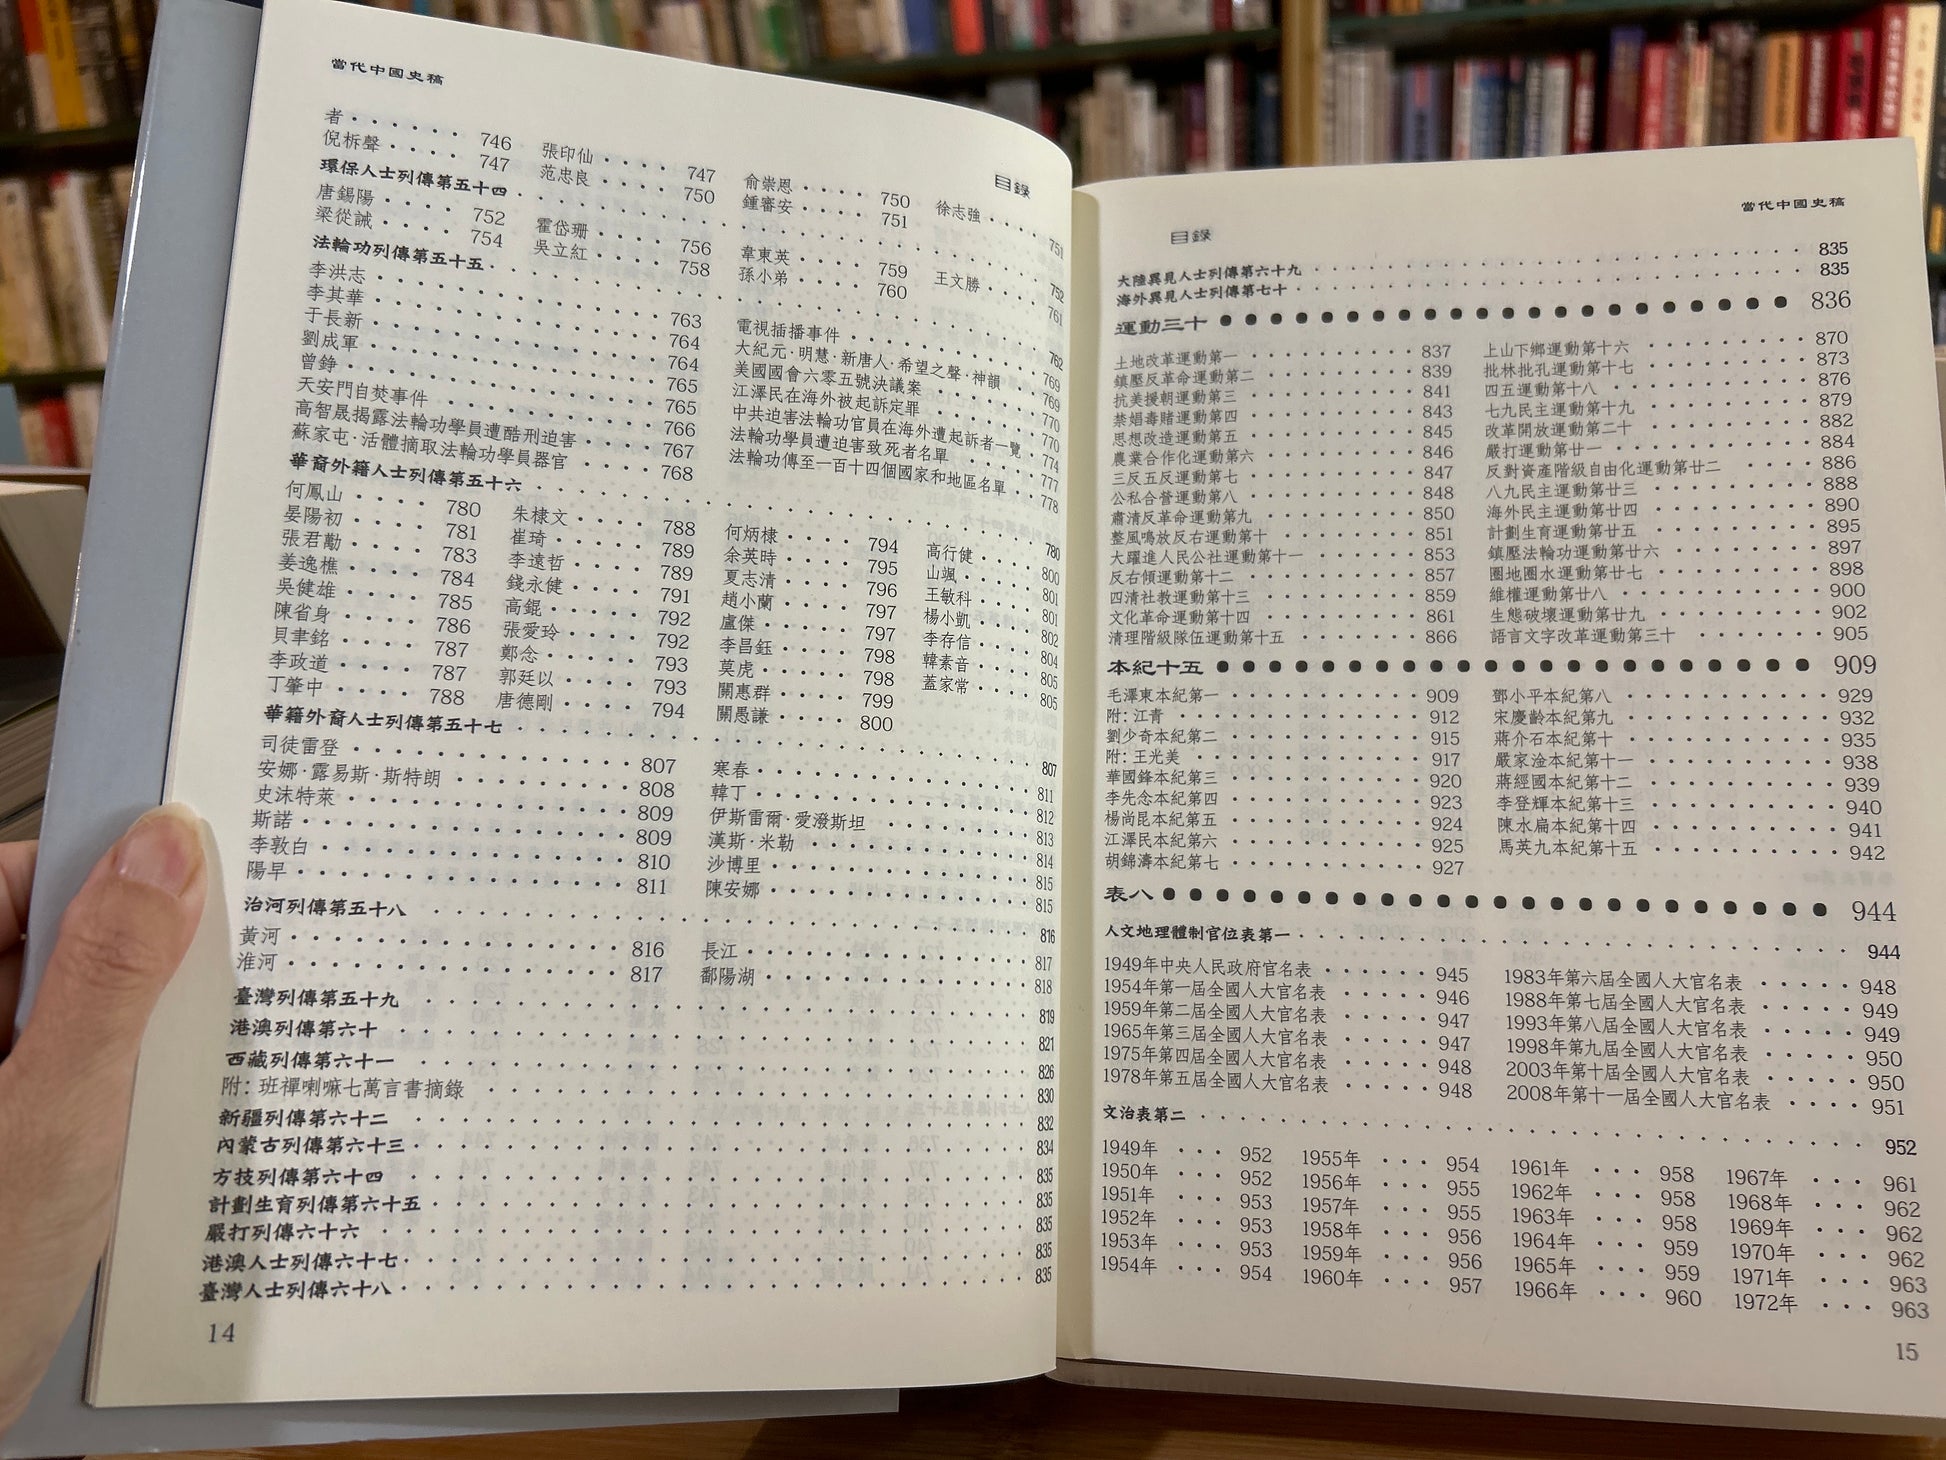 當代中國史稿
目錄
者 · · · · · · 746 張印仙 · · · · 747 俞崇恩 · · · · 750 徐志強 · · · · 751
倪柝聲 · · · · 747 范忠良 · · · · 750 鍾審安 · · · · 751
環保人士列傳第五十四 · · · · · · 752
唐錫陽 · · · · 752 霍岱珊 · · · · 756 韋東英 · · · · 759 王文勝 · · · · 761
梁從誡 · · · · 754 吳立紅 · · · · 758 孫小弟 · · · · 760
法輪功列傳第五十五 · · · · · · 762
李洪志 · · · · 763 電視插播事件 · · · · 769
李其華 · · · · 764 大紀元·明慧·新唐人·希望之聲·神韻 · · 769
于長新 · · · · 764 美國國會六零五號決議案 · · · · 770
劉成軍 · · · · 765 江澤民在海外被起訴定罪 · · · · 770
曾錚 · · · · 765 中共迫害法輪功官員在海外遭起訴者一覽 · · 774
天安門自焚事件 · · · · 766 法輪功學員遭迫害致死者名單 · · · · 777
高智晟揭露法輪功學員遭酷刑迫害 · · · · 767 法輪功傳至一百十四個國家和地區名單 · · 778
蘇家屯·活體摘取法輪功學員器官 · · · · 768
華裔外籍人士列傳第五十六 · · · · · · 780
何鳳山 · · · · 780 朱棣文 · · · · 788 何炳棣 · · · · 794 高行健 · · · · 800
晏陽初 · · · · 781 崔琦 · · · · 789 余英時 · · · · 795 山颯 · · · · 801
張君勱 · · · · 783 李遠哲 · · · · 789 夏志清 · · · · 796 王敏科 · · · · 801
姜逸樵 · · · · 784 錢永健 · · · · 791 趙小蘭 · · · · 797 楊小凱 · · · · 802
吳健雄 · · · · 785 高錕 · · · · 792 盧傑 · · · · 797 李存信 · · · · 804
陳省身 · · · · 786 張愛玲 · · · · 792 李昌鈺 · · · · 798 韓素音 · · · · 805
貝聿銘 · · · · 787 鄭念 · · · · 793 莫虎 · · · · 798 蓋家常 · · · · 805
李政道 · · · · 787 郭廷以 · · · · 793 關惠群 · · · · 799
丁肇中 · · · · 788 唐德剛 · · · · 794 關愚謙 · · · · 800
華籍外裔人士列傳第五十七 · · · · · · 807
司徒雷登 · · · · 807 寒春 · · · · 811
安娜·露易斯·斯特朗 · · · · 808 韓丁 · · · · 812
史沫特萊 · · · · 809 伊斯雷爾·愛潑斯坦 · · · · 813
斯諾 · · · · 809 漢斯·米勒 · · · · 814
李敦白 · · · · 810 沙博里 · · · · 815
陽早 · · · · 811 陳安娜 · · · · 815
治河列傳第五十八 · · · · · · 816
黃河 · · · · 816 長江 · · · · 817
淮河 · · · · 817 鄱陽湖 · · · · 818
臺灣列傳第五十九 · · · · · · 819
港澳列傳第六十 · · · · · · 821
西藏列傳第六十一 · · · · · · 826
附：班禪喇嘛七萬言書摘錄 · · · · · · 830
新疆列傳第六十二 · · · · · · 832
內蒙古列傳第六十三 · · · · · · 834
方技列傳第六十四 · · · · · · 835
計劃生育列傳第六十五 · · · · · · 835
嚴打列傳六十六 · · · · · · 835
港澳人士列傳六十七 · · · · · · 835
臺灣人士列傳六十八 · · · · · · 835
14
目錄
當代中國史稿
大陸異見人士列傳第六十九 · · · · · · 835
海外異見人士列傳第七十 · · · · · · 835
運動三十 ● ● ● ● ● ● 836
土地改革運動第一 · · · · 837 上山下鄉運動第十六 · · · · 870
鎮壓反革命運動第二 · · · · 839 批林批孔運動第十七 · · · · 873
抗美援朝運動第三 · · · · 841 四五運動第十八 · · · · 876
禁娼毒賭運動第四 · · · · 843 七九民主運動第十九 · · · · 879
思想改造運動第五 · · · · 845 改革開放運動第二十 · · · · 882
農業合作化運動第六 · · · · 846 嚴打運動第廿一 · · · · 884
三反五反運動第七 · · · · 847 反對資產階級自由化運動第廿二 · · · · 886
公私合營運動第八 · · · · 848 八九民主運動第廿三 · · · · 888
肅清反革命運動第九 · · · · 850 海外民主運動第廿四 · · · · 890
整風鳴放反右運動第十 · · · · 851 計劃生育運動第廿五 · · · · 895
大躍進人民公社運動第十一 · · · · 853 鎮壓法輪功運動第廿六 · · · · 897
反右傾運動第十二 · · · · 857 圈地圈水運動第廿七 · · · · 898
四清社教運動第十三 · · · · 859 維權運動第廿八 · · · · 900
文化革命運動第十四 · · · · 861 生態破壞運動第廿九 · · · · 902
清理階級隊伍運動第十五 · · · · 866 語言文字改革運動第三十 · · · · 905
本紀十五 ● ● ● ● ● ● 909
毛澤東本紀第一 · · · · 909 鄧小平本紀第八 · · · · 929
附：江青 · · · · 912 宋慶齡本紀第九 · · · · 932
劉少奇本紀第二 · · · · 915 蔣介石本紀第十 · · · · 935
附：王光美 · · · · 917 嚴家淦本紀第十一 · · · · 938
華國鋒本紀第三 · · · · 920 蔣經國本紀第十二 · · · · 939
李先念本紀第四 · · · · 923 李登輝本紀第十三 · · · · 940
楊尚昆本紀第五 · · · · 924 陳水扁本紀第十四 · · · · 941
江澤民本紀第六 · · · · 925 馬英九本紀第十五 · · · · 942
胡錦濤本紀第七 · · · · 927
表八 ● ● ● ● ● ● 944
人文地理體制官位表第一 · · · · · · 944
1949年中央人民政府官名表 · · · · 945 1983年第六屆全國人大官名表 · · · · 948
1954年第一屆全國人大官名表 · · · · 946 1988年第七屆全國人大官名表 · · · · 949
1959年第二屆全國人大官名表 · · · · 947 1993年第八屆全國人大官名表 · · · · 949
1965年第三屆全國人大官名表 · · · · 947 1998年第九屆全國人大官名表 · · · · 950
1975年第四屆全國人大官名表 · · · · 948 2003年第十屆全國人大官名表 · · · · 950
1978年第五屆全國人大官名表 · · · · 948 2008年第十一屆全國人大官名表 · · · · 951
文治表第二 · · · · · · 952
1949年 · · · 952 1955年 · · · 954 1961年 · · · 958 1967年 · · · 961
1950年 · · · 952 1956年 · · · 955 1962年 · · · 958 1968年 · · · 962
1951年 · · · 953 1957年 · · · 955 1963年 · · · 958 1969年 · · · 962
1952年 · · · 953 1958年 · · · 956 1964年 · · · 959 1970年 · · · 962
1953年 · · · 953 1959年 · · · 956 1965年 · · · 959 1971年 · · · 963
1954年 · · · 954 1960年 · · · 957 1966年 · · · 960 1972年 · · · 963
15